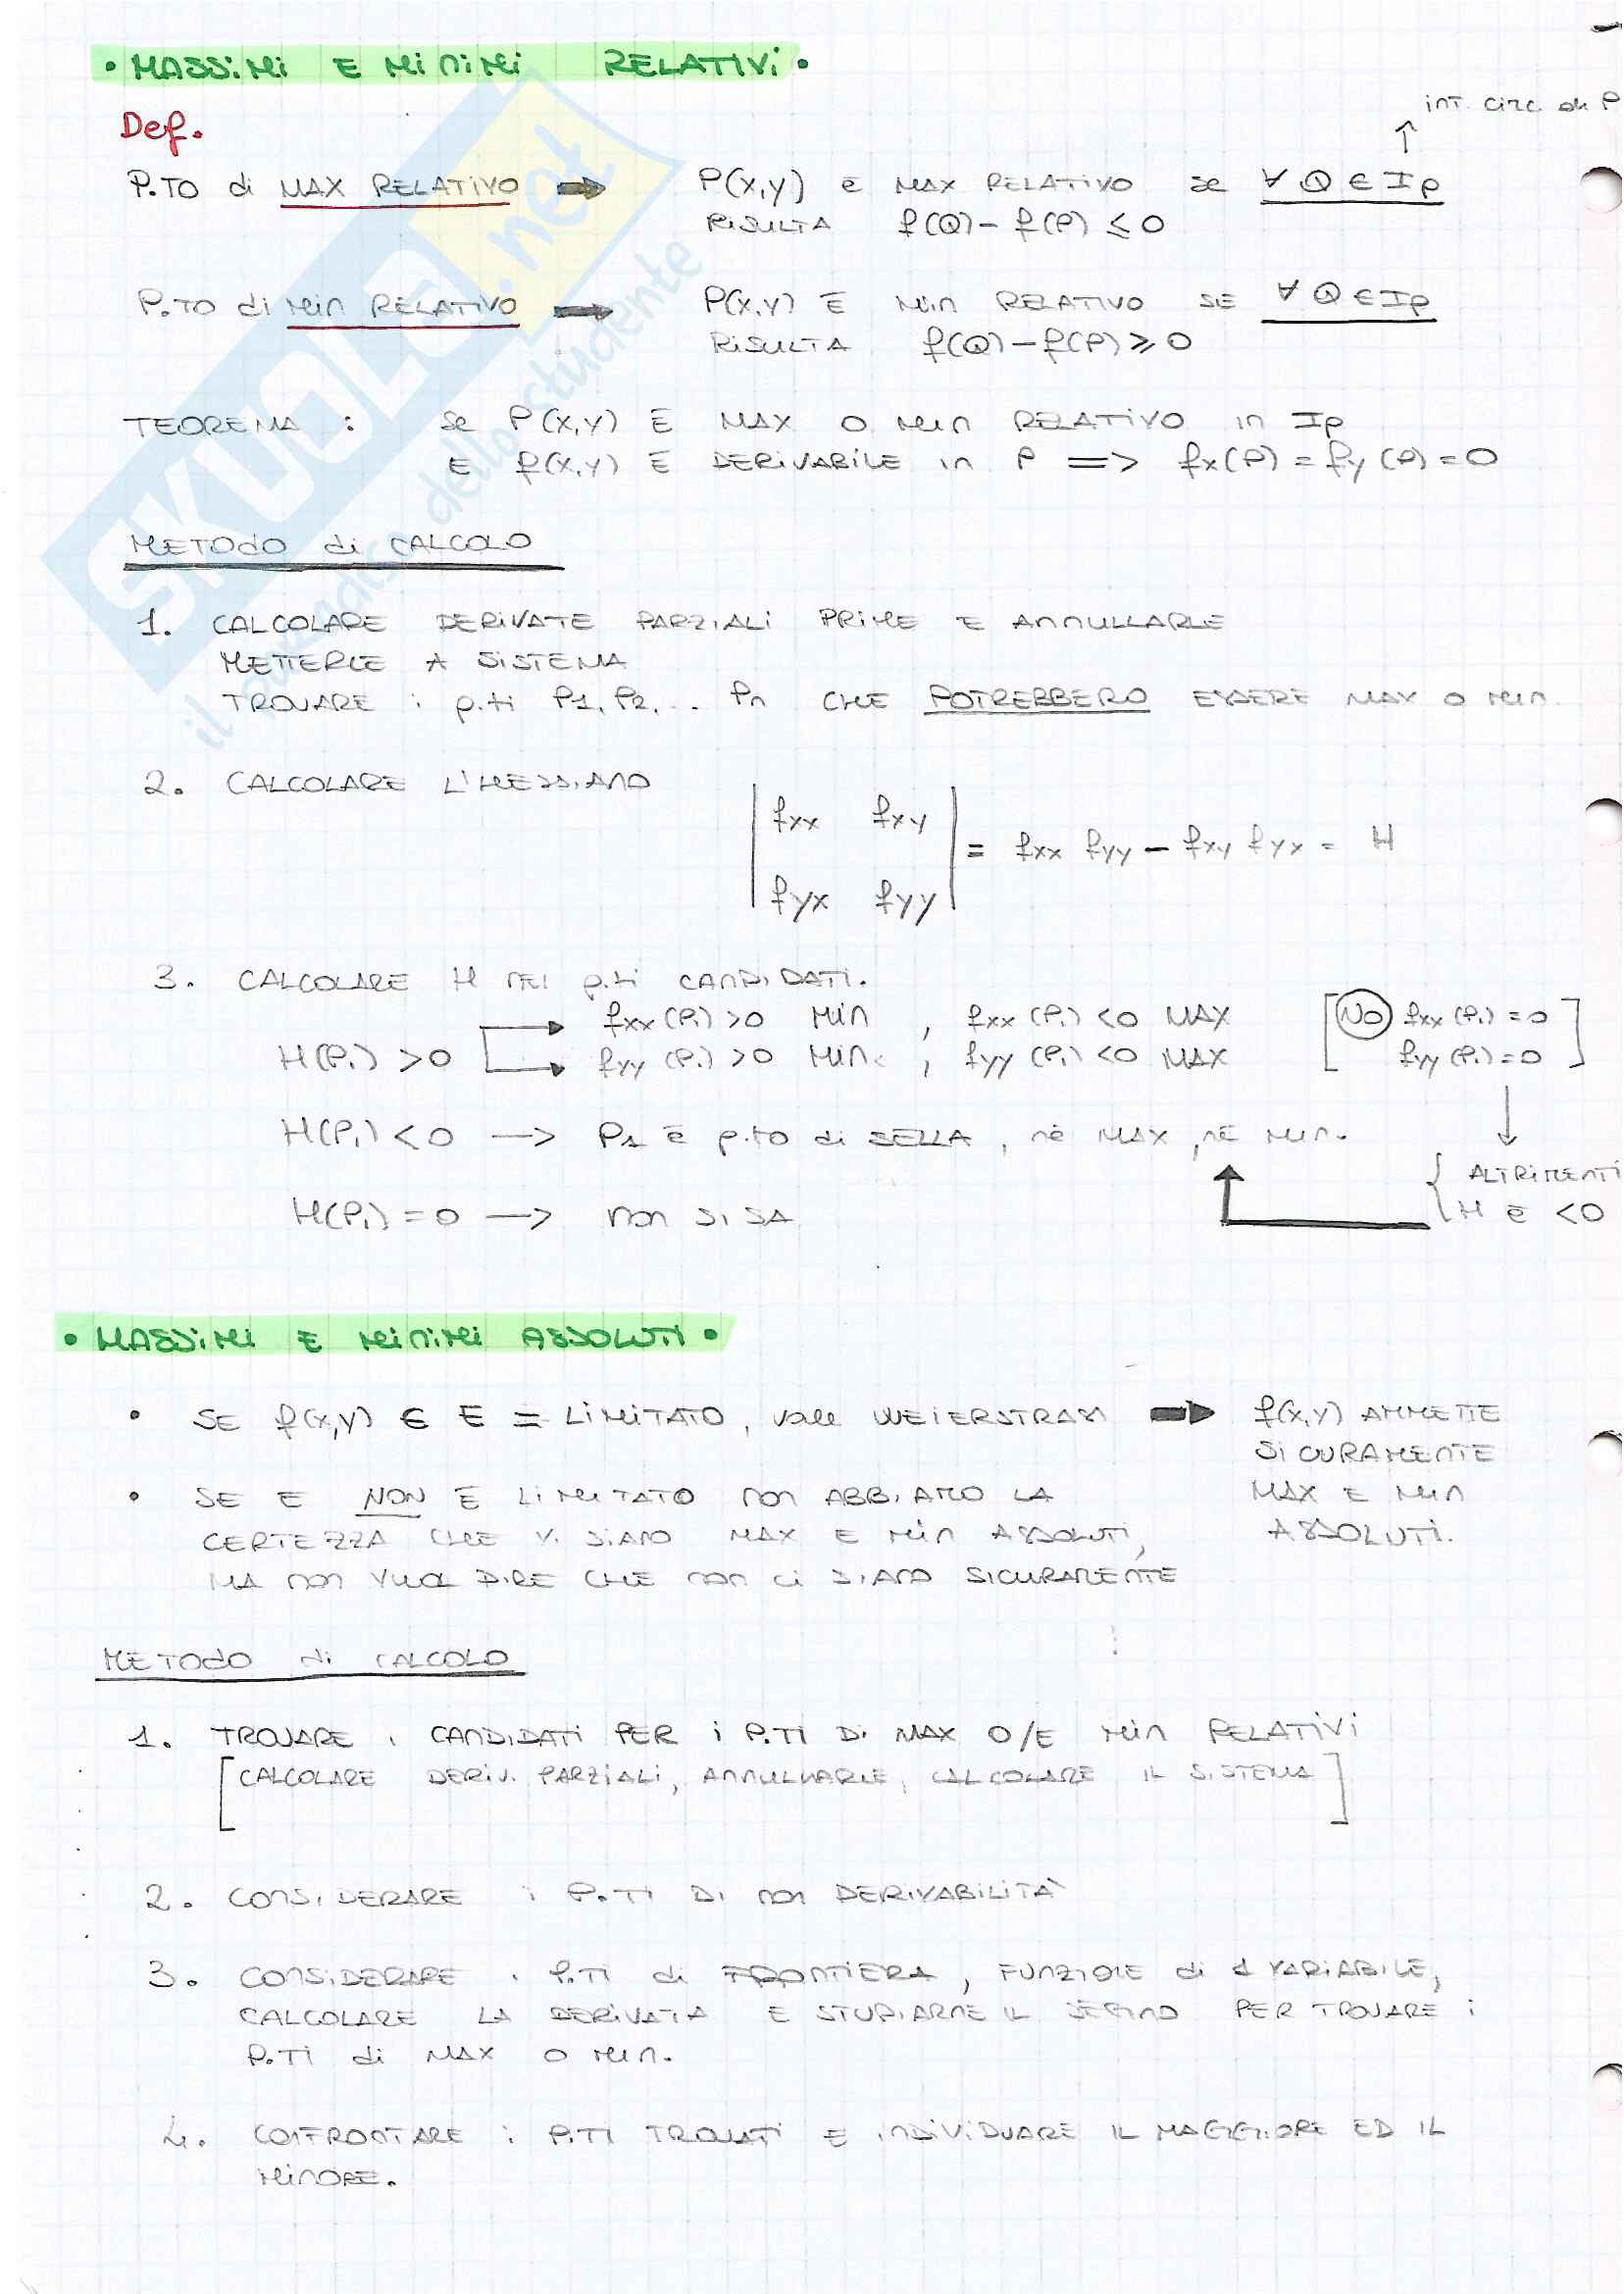 • MASSIMI E MINIMI RELATIVI •
Def.
int. circ. di P
P.TO di MAX RELATIVO ➡ P(x,y) è MAX RELATIVO se ∀ Q ∈ Ip
RISULTA f(Q) - f(P) ≤ 0
P.TO di Min RELATIVO ➡ P(x,y) È Min RELATIVO SE ∀ Q ∈ Ip
RISULTA f(Q) - f(P) ≥ 0
TEOREMA : Se P(x,y) È MAX O Min RELATIVO in Ip
E f(x,y) È DERIVABILE in P => fx(P) = fy(P) = 0
METODO di CALCOLO
1. CALCOLARE DERIVATE PARZIALI PRIME E ANNULLARLE
METTERLE A SISTEMA
TROVARE i p.ti P1, P2, .. Pn CHE POTREBBERO ESSERE MAX O Min.
2. CALCOLARE L'HESSIANO
| fxx fxy |
| fyx fyy | = fxx fyy - fxy fyx = H
3. CALCOLARE H nei p.ti CANDIDATI.
H(Pi) > 0 → fxx (Pi) > 0 Min , fxx (Pi) < 0 MAX [NO fxx (Pi) = 0
→ fyy (Pi) > 0 Min. , fyy (Pi) < 0 MAX fyy (Pi) = 0]
↓
H(Pi) < 0 → P1 è p.to di SELLA , nè MAX , nè Min.
{ ALTRIMENTI
H è < 0
H(Pi) = 0 → non SI SA
• MASSIMI E MINIMI ASSOLUTI •
• SE f(x,y) ∈ E = LIMITATO, vale WEIERSTRASS ➡ f(x,y) AMMETTE
SICURAMENTE
MAX E Min
ASSOLUTI.
• SE E NON È LIMITATO non ABBIAMO LA
CERTEZZA CHE VI SIANO MAX E Min ASSOLUTI,
MA non VUOL DIRE CHE non ci SIANO SICURAMENTE
METODO di CALCOLO
1. TROVARE i CANDIDATI PER i P.TI DI MAX O/E Min RELATIVI
[CALCOLARE DERIV. PARZIALI, ANNULLARLE, CALCOLARE IL SISTEMA]
2. CONSIDERARE i P.TI DI non DERIVABILITÀ
3. CONSIDERARE i P.TI di FRONTIERA, FUNZIONE di 1 VARIABILE,
CALCOLARE LA DERIVATA E STUDIARNE IL SEGNO PER TROVARE i
P.TI di MAX O Min.
4. CONFRONTARE i P.TI TROVATI E INDIVIDUARE IL MAGGIORE ED IL
MINORE.
SKUOLA.net
il paradiso dello studente